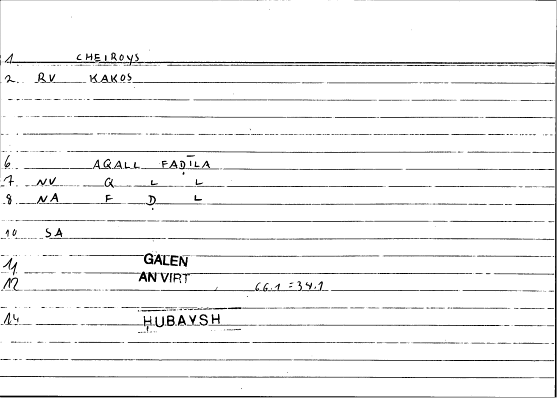 1 CHEIROYS
2 RV KAKOS
6 AQALL FAḌĪLA
7 NV Q L L
8 NA F Ḍ L
10 SA
11 GALEN
12 AN VIRT 66.1 = 34.1
14 ḤUBAYSH